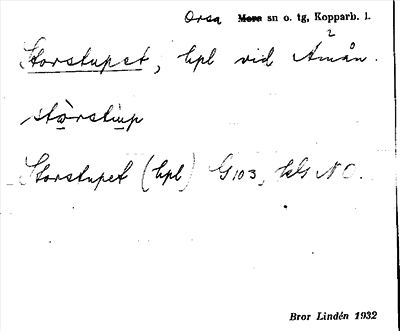 Orsa Mora sn o. tg, Kopparb. l.
Storstupet, hpl vid Ämån.
2
stòrstup
Storstupet (hpl) G103, kls NO.
Bror Lindén 1932